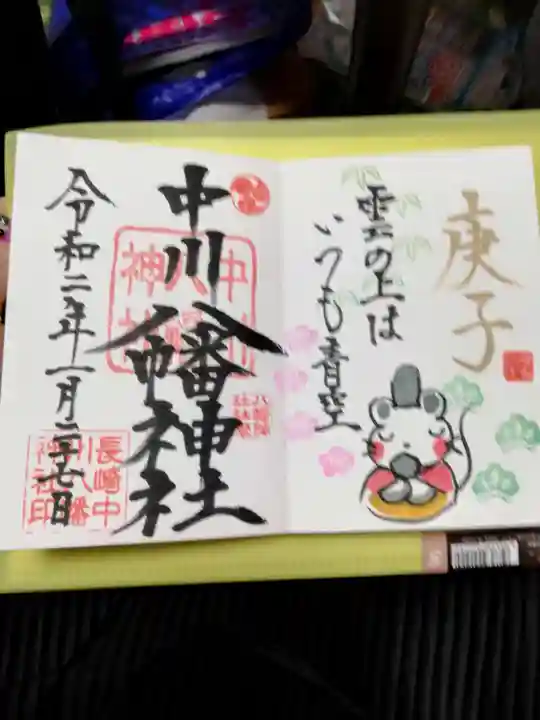 庚子
雲の上は
いつも青空
中川八幡神社
令和二年一月二十七日
中川八幡神社
長崎中川八幡神社印